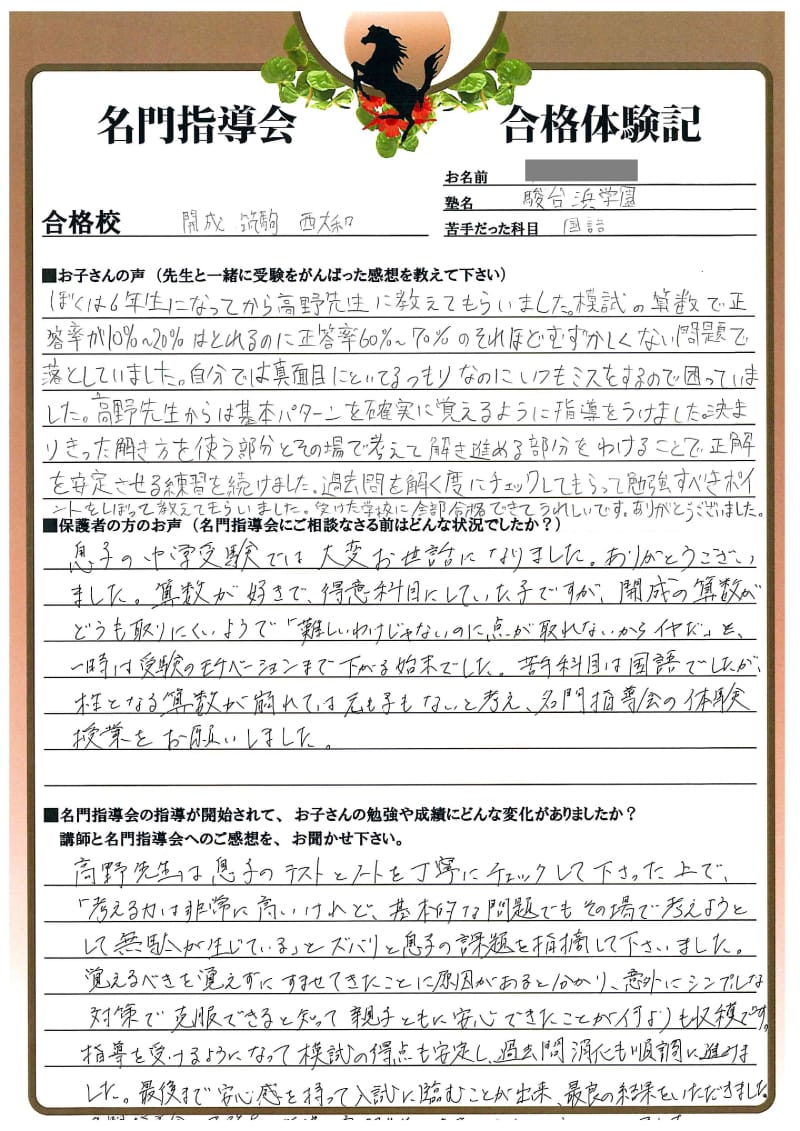 名門指導会 合格体験記
お名前
塾名 駿台浜学園
合格校 開成 筑駒 西大和
苦手だった科目 国語
■お子さんの声（先生と一緒に受験をがんばった感想を教えて下さい）
ぼくは6年生になってから高野先生に教えてもらいました。模試の算数で正
答率が10%〜20%はとれるのに正答率60%〜70%のそれほどむずかしくない問題で
落としていました。自分では真面目にといてるつもりなのにいつもミスをするので困っていま
した。高野先生からは基本パターンを確実に覚えるように指導をうけました。決ま
りきった解き方を使う部分とその場で考えて解き進める部分をわけることで正解
を安定させる練習を続けました。過去問を解く度にチェックしてもらって勉強すべきポイ
ントをしぼって教えてもらいました。受けた学校に全部合格できてうれしいです。ありがとうございました。
■保護者の方のお声（名門指導会にご相談なさる前はどんな状況でしたか？）
息子の中学受験では大変お世話になりました。ありがとうござい
ました。算数が好きで、得意科目にしていた子ですが、開成の算数が
どうも取りにくいようで「難しいわけじゃないのに点が取れないからイヤだ」と、
一時は受験のモチベーションまで下がる始末でした。苦手科目は国語でしたが、
柱となる算数が崩れては元も子もないと考え、名門指導会の体験
授業をお願いしました。
■名門指導会の指導が開始されて、お子さんの勉強や成績にどんな変化がありましたか？
講師と名門指導会へのご感想を、お聞かせ下さい。
高野先生は息子のテストとノートを丁寧にチェックして下さった上で、
「考える力は非常に高いけれど、基本的な問題でもその場で考えようと
して無駄が生じている」とズバリと息子の課題を指摘して下さいました。
覚えるべきを覚えずにすませてきたことに原因があると分かり、意外にシンプルな
対策で克服できると知って親子ともに安心できたことが何よりも収穫です。
指導を受けるようになって模試の得点も安定し、過去問消化も順調に進みま
した。最後まで安心感を持って入試に臨むことが出来、最良の結果をいただきました。